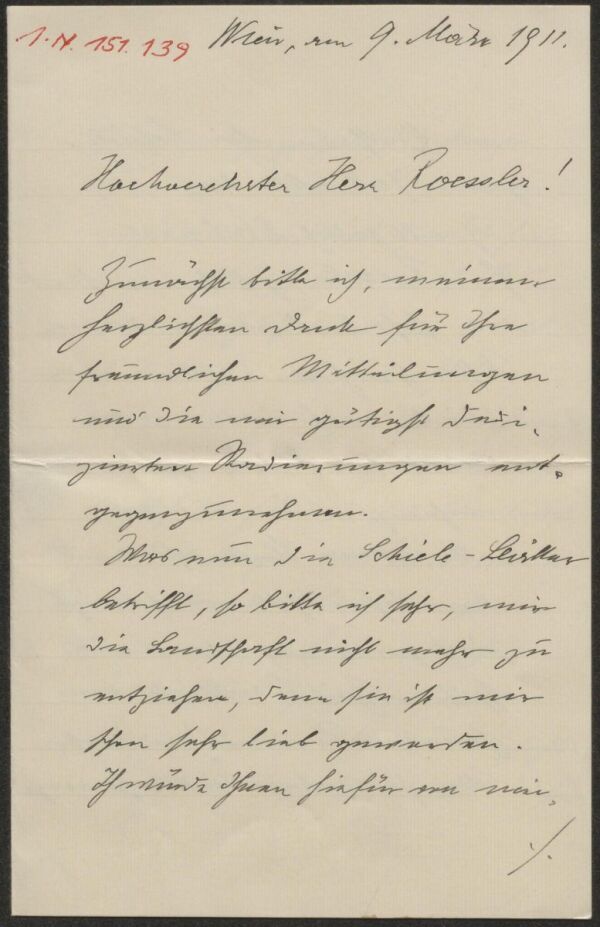 I.N. 151.139
Wien, am 9. März 1911.
Hochverehrter Herr Roessler!
Zunächst bitte ich, meinen
herzlichsten Dank für Ihre
freundlichen Mitteilungen
und die mir gütigst dedi-
zierten Radierungen ent-
gegenzunehmen.
Was nun die Schiele-Blätter
betrifft, so bitte ich sehr, mir
die Landschaft nicht mehr zu
entziehen, denn sie ist mir
schon sehr lieb geworden.
Ich würde Ihnen hiefür von mei-
./.